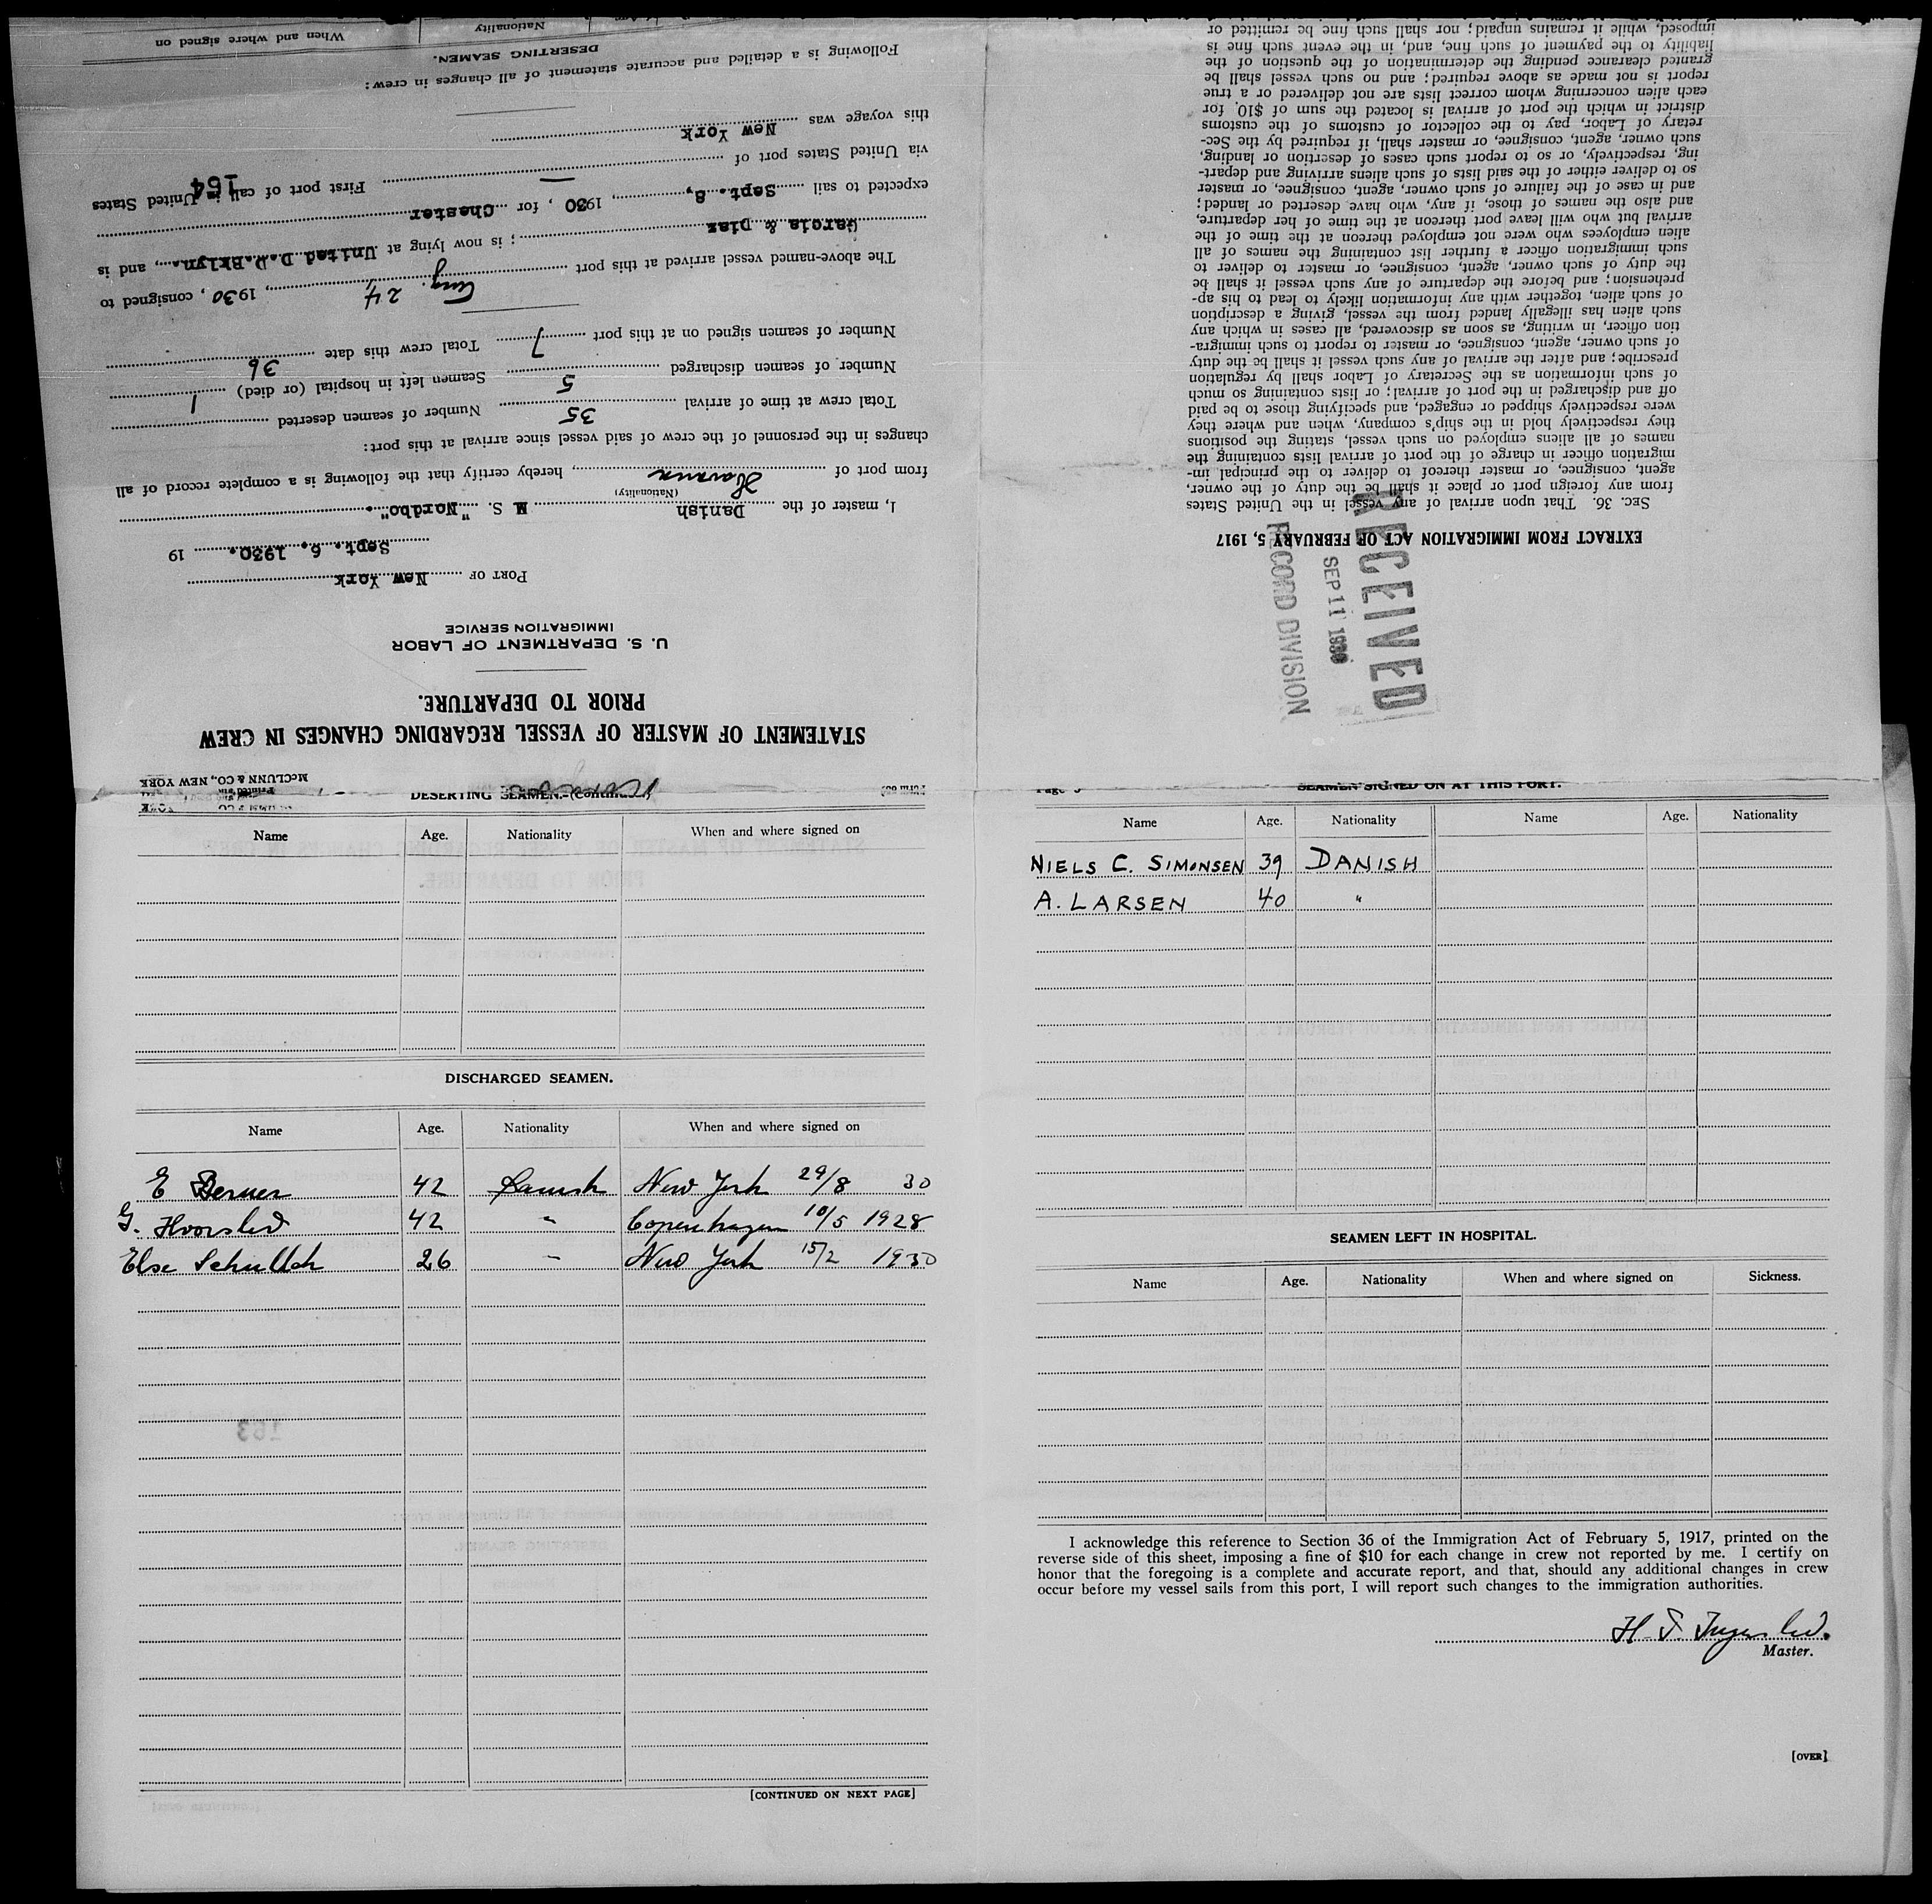 Form 689
McCLUNN & CO., NEW YORK
STATEMENT OF MASTER OF VESSEL REGARDING CHANGES IN CREW
PRIOR TO DEPARTURE.
U. S. DEPARTMENT OF LABOR
IMMIGRATION SERVICE
PORT OF New York
Sept. 6, 1930. 19
I, master of the Danish M S. "Nordbo".
(Nationality)
from port of Havana, hereby certify that the following is a complete record of all
changes in the personnel of the crew of said vessel since arrival at this port:
Total crew at time of arrival 35 Number of seamen deserted
Number of seamen discharged 5 Seamen left in hospital (or died) 1
Number of seamen signed on at this port 7 Total crew this date 36
The above-named vessel arrived at this port Aug. 24, 1930, consigned to
Garcia & Diaz; is now lying at United D.D.Bklyn., and is
expected to sail Sept. 8, 1930, for Chester
via United States port of — First port of call in United States
164
this voyage was New York
Following is a detailed and accurate statement of all changes in crew:
DESERTING SEAMEN.
Nationality When and where signed on
EXTRACT FROM IMMIGRATION ACT OF FEBRUARY 5, 1917
SEC. 36. That upon arrival of any vessel in the United States
from any foreign port or place it shall be the duty of the owner,
agent, consignee, or master thereof to deliver to the principal im-
migration officer in charge of the port of arrival lists containing the
names of all aliens employed on such vessel, stating the positions
they respectively hold in the ship's company, when and where they
were respectively shipped or engaged, and specifying those to be paid
off and discharged in the port of arrival; or lists containing so much
of such information as the Secretary of Labor shall by regulation
prescribe; and after the arrival of any such vessel it shall be the duty
of such owner, agent, consignee, or master to report to such immigra-
tion officer, in writing, as soon as discovered, all cases in which any
such alien has illegally landed from the vessel, giving a description
of such alien, together with any information likely to lead to his ap-
prehension; and before the departure of any such vessel it shall be
the duty of such owner, agent, consignee, or master to deliver to
such immigration officer a further list containing the names of all
alien employees who were not employed thereon at the time of the
arrival but who will leave port thereon at the time of her departure,
and also the names of those, if any, who have deserted or landed;
and in case of the failure of such owner, agent, consignee, or master
so to deliver either of the said lists of such aliens arriving and depart-
ing, respectively, or so to report such cases of desertion or landing,
such owner, agent, consignee, or master shall, if required by the Sec-
retary of Labor, pay to the collector of customs of the customs
district in which the port of arrival is located the sum of $10. for
each alien concerning whom correct lists are not delivered or a true
report is not made as above required; and no such vessel shall be
granted clearance pending the determination of the question of the
liability to the payment of such fine, and, in the event such fine is
imposed, while it remains unpaid; nor shall such fine be remitted or
RECEIVED
SEP 11 1930
RECORD DIVISION
DESERTING SEAMEN.-(Continued)
Name Age. Nationality When and where signed on
DISCHARGED SEAMEN.
Name Age. Nationality When and where signed on
E Berner 42 Danish New York 29/8 30
G. Hvorsled 42 " Copenhagen 10/5 1928
Else Schultch 26 " New York 15/2 1930
163
[CONTINUED ON NEXT PAGE]
Page 3
SEAMEN SIGNED ON AT THIS PORT.
Name Age. Nationality Name Age. Nationality
NIELS C. SIMONSEN 39 DANISH
A. LARSEN 40 "
SEAMEN LEFT IN HOSPITAL.
Name Age. Nationality When and where signed on Sickness.
I acknowledge this reference to Section 36 of the Immigration Act of February 5, 1917, printed on the
reverse side of this sheet, imposing a fine of $10 for each change in crew not reported by me. I certify on
honor that the foregoing is a complete and accurate report, and that, should any additional changes in crew
occur before my vessel sails from this port, I will report such changes to the immigration authorities.
Master.
[OVER]